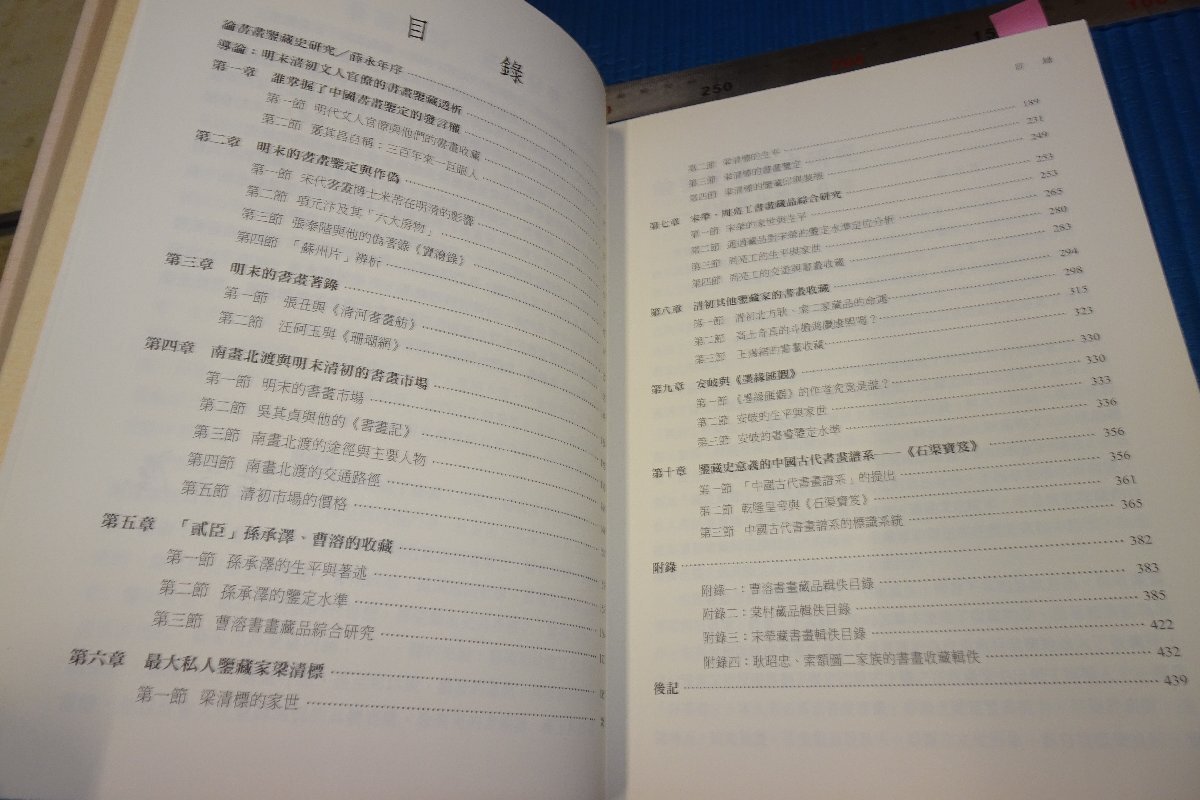 目 錄
論書畫鑒藏史研究/薛永年序
導論:明末清初文人官僚的書畫鑒藏透析
第一章 誰掌握了中國書畫鑒定的發言權
第一節 明代文人官僚與他們的書畫收藏
第二節 董其昌自稱:三百年來一巨眼人
第二章 明末的書畫鑒定與作偽
第一節 宋代書畫博士米芾在明清的影響
第二節 項元汴及其「六大房物」
第三節 張泰階與他的偽著錄《寶繪錄》
第四節 「蘇州片」辨析
第三章 明末的書畫著錄
第一節 張丑與《清河書畫舫》
第二節 汪砢玉與《珊瑚網》
第四章 南畫北渡與明末清初的書畫市場
第一節 明末的書畫市場
第二節 吳其貞與他的《書畫記》
第三節 南畫北渡的途徑與主要人物
第四節 南畫北渡的交通路徑
第五節 清初市場的價格
第五章 「貳臣」孫承澤、曹溶的收藏
第一節 孫承澤的生平與著述
第二節 孫承澤的鑒定水準
第三節 曹溶書畫藏品綜合研究
第六章 最大私人鑒藏家梁清標
第一節 梁清標的家世
250
目 錄
第二節 梁清標的生平 189
第三節 梁清標的書畫鑒定 231
第四節 梁清標的鑒藏印與裝裱 249
第七章 宋犖、周亮工書畫藏品綜合研究 253
第一節 宋犖的家世與生平 253
第二節 透過藏品對宋犖的鑒定水準定位分析 265
第三節 周亮工的生平與家世 280
第四節 周亮工的交遊與書畫收藏 283
第八章 清初其他鑒藏家的書畫收藏 294
第一節 清初北方耿、索二家藏品的命運 298
第二節 高士奇真的 315
第三節 王鴻緒的書畫收藏 323
第九章 安岐與《墨緣匯觀》 330
第一節 《墨緣匯觀》的作者究竟是誰? 330
第二節 安岐的生平與家世 333
第三節 安岐的書畫鑒定水準 336
第十章 鑒藏史意義的中國古代書畫譜系——《石渠寶笈》 356
第一節 「中國古代書畫譜系」的提出 356
第二節 乾隆皇帝與《石渠寶笈》 361
第三節 中國古代書畫譜系的標識系統 365
附錄 382
附錄一:曹溶書畫藏品輯佚目錄 383
附錄二:棠村藏品輯佚目錄 385
附錄三:宋犖藏書畫輯佚目錄 422
附錄四:耿昭忠、索額圖二家族的書畫收藏輯佚 432
後記 439